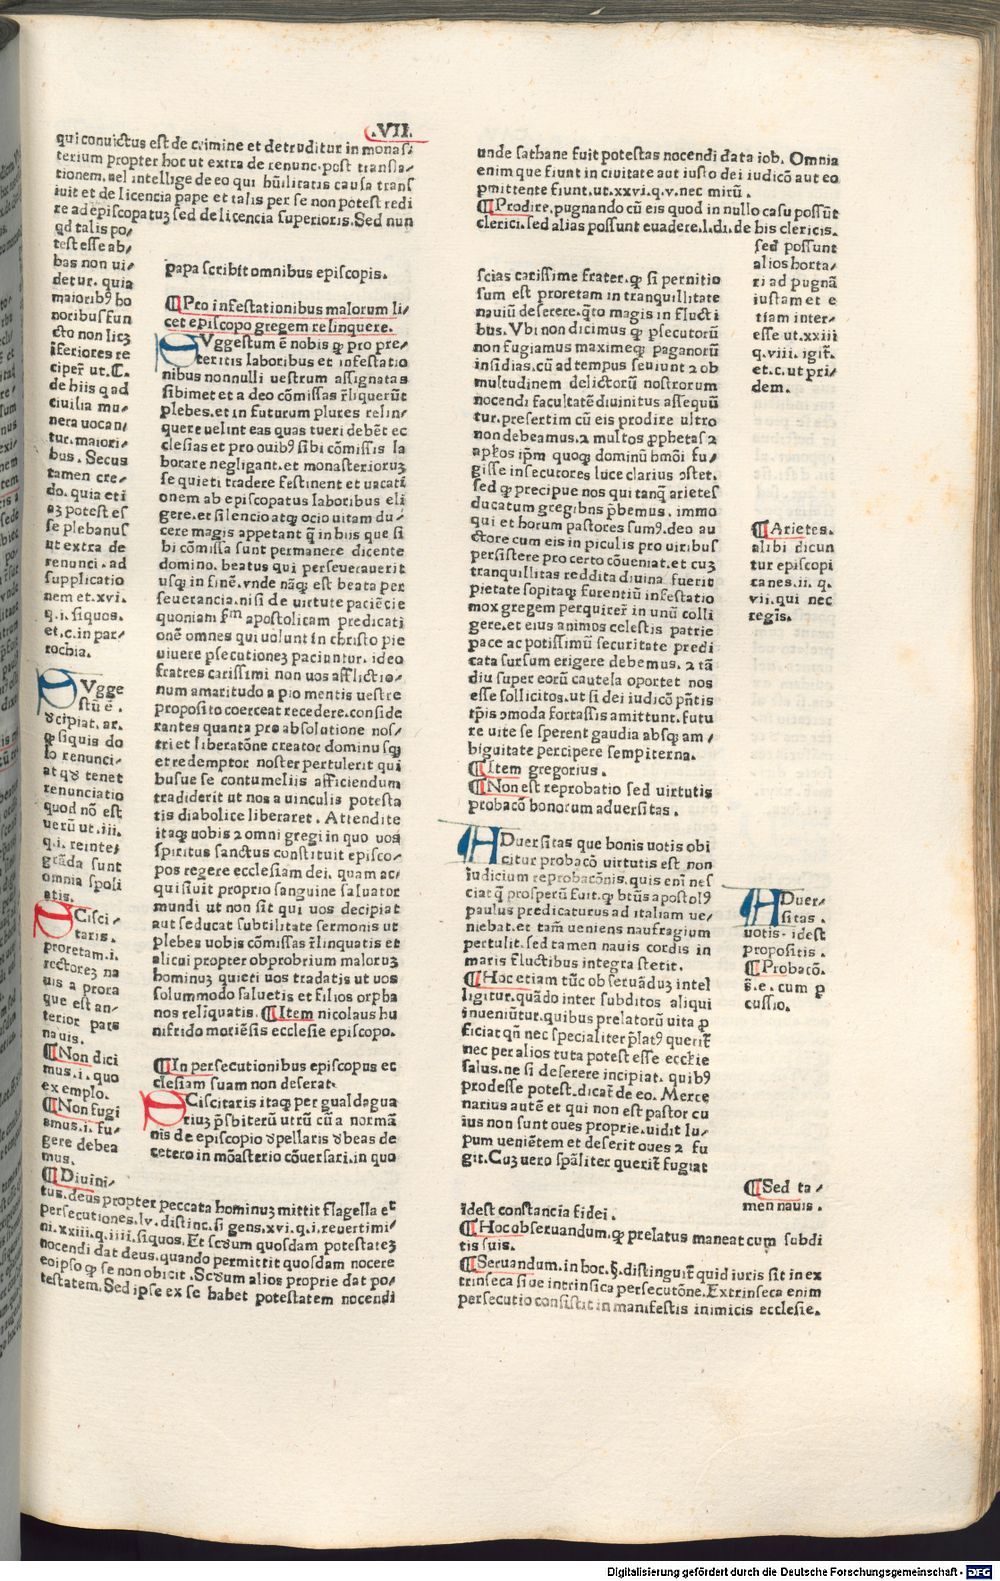 .VII.
qui conuictus est de crimine et detruditur in monas/
terium propter hoc ut extra de renunc. post transla/
tionem. uel intellige de eo qui hūilitatis causa trans
iuit et de licencia pape et talis per se non potest redi
re ad episcopatuʒ sed de licencia superioris. Sed nun
qd talis po/
test esse ab/
bas non ui/
detur. quia
maiorib9 ho
noribus fun
cto non licʒ
īferiores re
ciper ut. C.
de hiis q ad
ciuilia mu/
nera uocan/
tur. maiori/
bus. Secus
tamen cre/
do. quia eti
aʒ potest es
se plebanus
ut extra de
renunci. ad
supplicatio
nem et. xvi.
q. i. siquos.
et. c. in par/
rochia.
SVgge
stū ē.
decipiat. ar.
ꝙ siquis do
lo renunci/
at qd tenet
renunciatio
quod nō est
uerū ut. iii.
q. i. reinteg
grāda sunt
omnia spoli
atis.
SCisci/
taris.
proretam. i.
rectoreʒ na
uis a prora
que est an/
terior pars
nauis.
¶ Non dici
mus. i. quo
exemplo.
¶ Non fugi
amus. i. fu/
gere debea
mus.
¶ Diuini/
tus. deus propter peccata hominuʒ mittit flagella et
persecutiones. lv. distinc. si gens. xvi. q. i. reuertimi/
ni. xxiii. q. iiii. siquos. Et secdum quosdam potestateʒ
nocendi dat deus. quando permittit quosdam nocere
eo ipso ꝙ se non obicit. Secdum alios proprie dat po/
testatem. Sed ipse ex se habet potestatem nocendi
papa scribit omnibus episcopis.
¶ Pro infestationibus malorum li/
cet episcopo gregem relinquere.
SVggestum ē nobis ꝙ pro pre/
teritis laboribus et infestatio
nibus nonnulli uestrum assignatas
sibimet et a deo cōmissas r̄liquerūt
plebes. et in futurum plures relin/
quere uelint eas quas tueri debēt ec
clesias et pro ouib9 sibi cōmissis la
borare negligant. et monasterioruʒ
se quieti tradere festinent et uacati
onem ab episcopatus laboribus eli
gere. et silencio atqʒ ocio uitam du/
cere magis appetant q̄ in hiis que si
bi cōmissa sunt permanere dicente
domino. beatus qui perseuerauerit
usqʒ in finē. vnde nāqʒ est beata per
seuerancia. nisi de uirtute paciēcie
quoniam sm apostolicam predicati
onē omnes qui uolunt in christo pie
viuere psecutioneʒ paciuntur. ideo
fratres carissimi non uos afflictio/
num amaritudo a pio mentis uestre
proposito coerceat recedere. conside
rantes quanta pro absolutione nos/
tri et liberatōne creator dominusqʒ
et redemptor noster pertulerit qui
busue se contumeliis afficiendum
tradiderit ut nos a uinculis potesta
tis diabolice liberaret. Attendite
itaqʒ uobis ⁊ omni gregi in quo uos
spiritus sanctus constituit episco/
pos regere ecclesiam dei, quam ac/
quisiuit proprio sanguine saluator
mundi ut non sit qui uos decipiat
aut seducat subtilitate sermonis ut
plebes uobis cōmissas r̄linquatis et
alicui propter obprobrium maloruʒ
hominuʒ quieti uos tradatis ut uos
solummodo saluetis et filios orpha
nos reliquatis. ¶ Item nicolaus hu
nifrido moriēsis ecclesie episcopo.
¶ In persecutionibus episcopus ec
clesiam suam non deserat.
SCiscitaris itaqʒ per gualdagua
riuʒ p̄sbiterū utrū cū a normā
nis de episcopio depellaris debeas de
cetero in mōasterio cōuersari. in quo
unde sathane fuit potestas nocendi data iob. Omnia
enim que fiunt in ciuitate aut iusto dei iudicō aut eo
pmittente fiunt. ut. xxvi. q. v. nec mirū.
¶ Prodire. pugnando cū eis quod in nullo casu possūt
clerici. sed alias possunt euadere. l. di. de his clericis.
sed possunt
alios horta/
ri ad pugnā
iustam et e
tiam inter/
esse ut. xxiii
q. viii. igit̄.
et. c. ut pri/
dem.
scias carissime frater. ꝙ si pernitio
sum est proretam in tranquillitate
nauiū deserere. q̄to magis in flucti
bus. Vbi non dicimus ꝙ psecutorū
non fugiamus maximeqʒ paganorū
insidias. cū ad tempus seuiunt ⁊ ob
multudinem delictorū nostrorum
nocendi facultatē diuinitus assequū
tur. presertim cū eis prodire ultro
non debeamus. ⁊ multos ꝓphetas ⁊
aplōs ip̄m quoqʒ dominū hmōi fu/
gisse insecutores luce clarius ɔstet.
sed ꝙ precipue nos qui tanqʒ arietes
ducatum gregibns p̄bemus. immo
qui et horum pastores sum9. deo au
ctore cum eis in piculis pro uiribus
persistere pro certo cōueniat. et cuʒ
tranquillitas reddita diuina fuerit
pietate sopitaqʒ furentiū infestatio
mox gregem perquirer̄ in unū colli
gere. et eius animos celestis patrie
pace ac potissimū securitate predi
cata sursum erigere debemus. ⁊ tā
diu super eorū cautela oportet nos
esse sollicitos. ut si dei iudicō p̄ntis
tp̄is ɔmoda fortassis amittunt. futu
re uite se sperent gaudia absqʒ am/
biguitate percipere sempiterna.
¶ Item gregorius.
¶ Non est reprobatio sed uirtutis
probacō bonorum aduersitas.
ADuersitas que bonis uotis obi
citur probacō virtutis est non
iudicium reprobacōnis. quis enī nes
ciat q̄ prosperū fuit. ꝙ bt̄us apostol9
paulus predicaturus ad italiam ue/
niebat. et tam̄ ueniens naufragium
pertulit. sed tamen nauis cordis in
maris fluctibus integra stetit.
¶ Hoc etiam tūc obseruāduʒ intel
ligitur. quādo inter subditos aliqui
inueniūtur. quibus prelatorū uita ꝓ
ficiat qn̄ nec specialiter p̄lat9 querit̄
nec per alios tuta potest esse eccl̄ie
salus. ne si deserere incipiat. quib9
prodesse potest. dicat̄ de eo. Merce
narius autē et qui non est pastor cu
ius non sunt oues proprie. uidit lu/
pum ueniētem et deserit oues ⁊ fu
git. Cuʒ uero sp̄aliter querit̄ fugiat
¶ Arietes.
alibi dicun
tur episcopi
canes. ii. q.
vii. qui nec
regīs.
ADuer/
sitas.
uotis. idest
propositis.
¶ Probacō.
s̄. e. cum ꝑ
cussio.
¶ Sed ta/
men nauis.
idest constancia fidei.
¶ Hoc obseruandum. ꝙ prelatus maneat cum subdi
tis suis.
¶ Seruandum. in hoc. §. distinguit̄ quid iuris sit in ex
trinseca siue intrinsica persecutōne. Extrinseca enim
persecutio consistit in manifestis inimicis ecclesie.
Digitalisierung gefördert durch die Deutsche Forschungsgemeinschaft - DFG